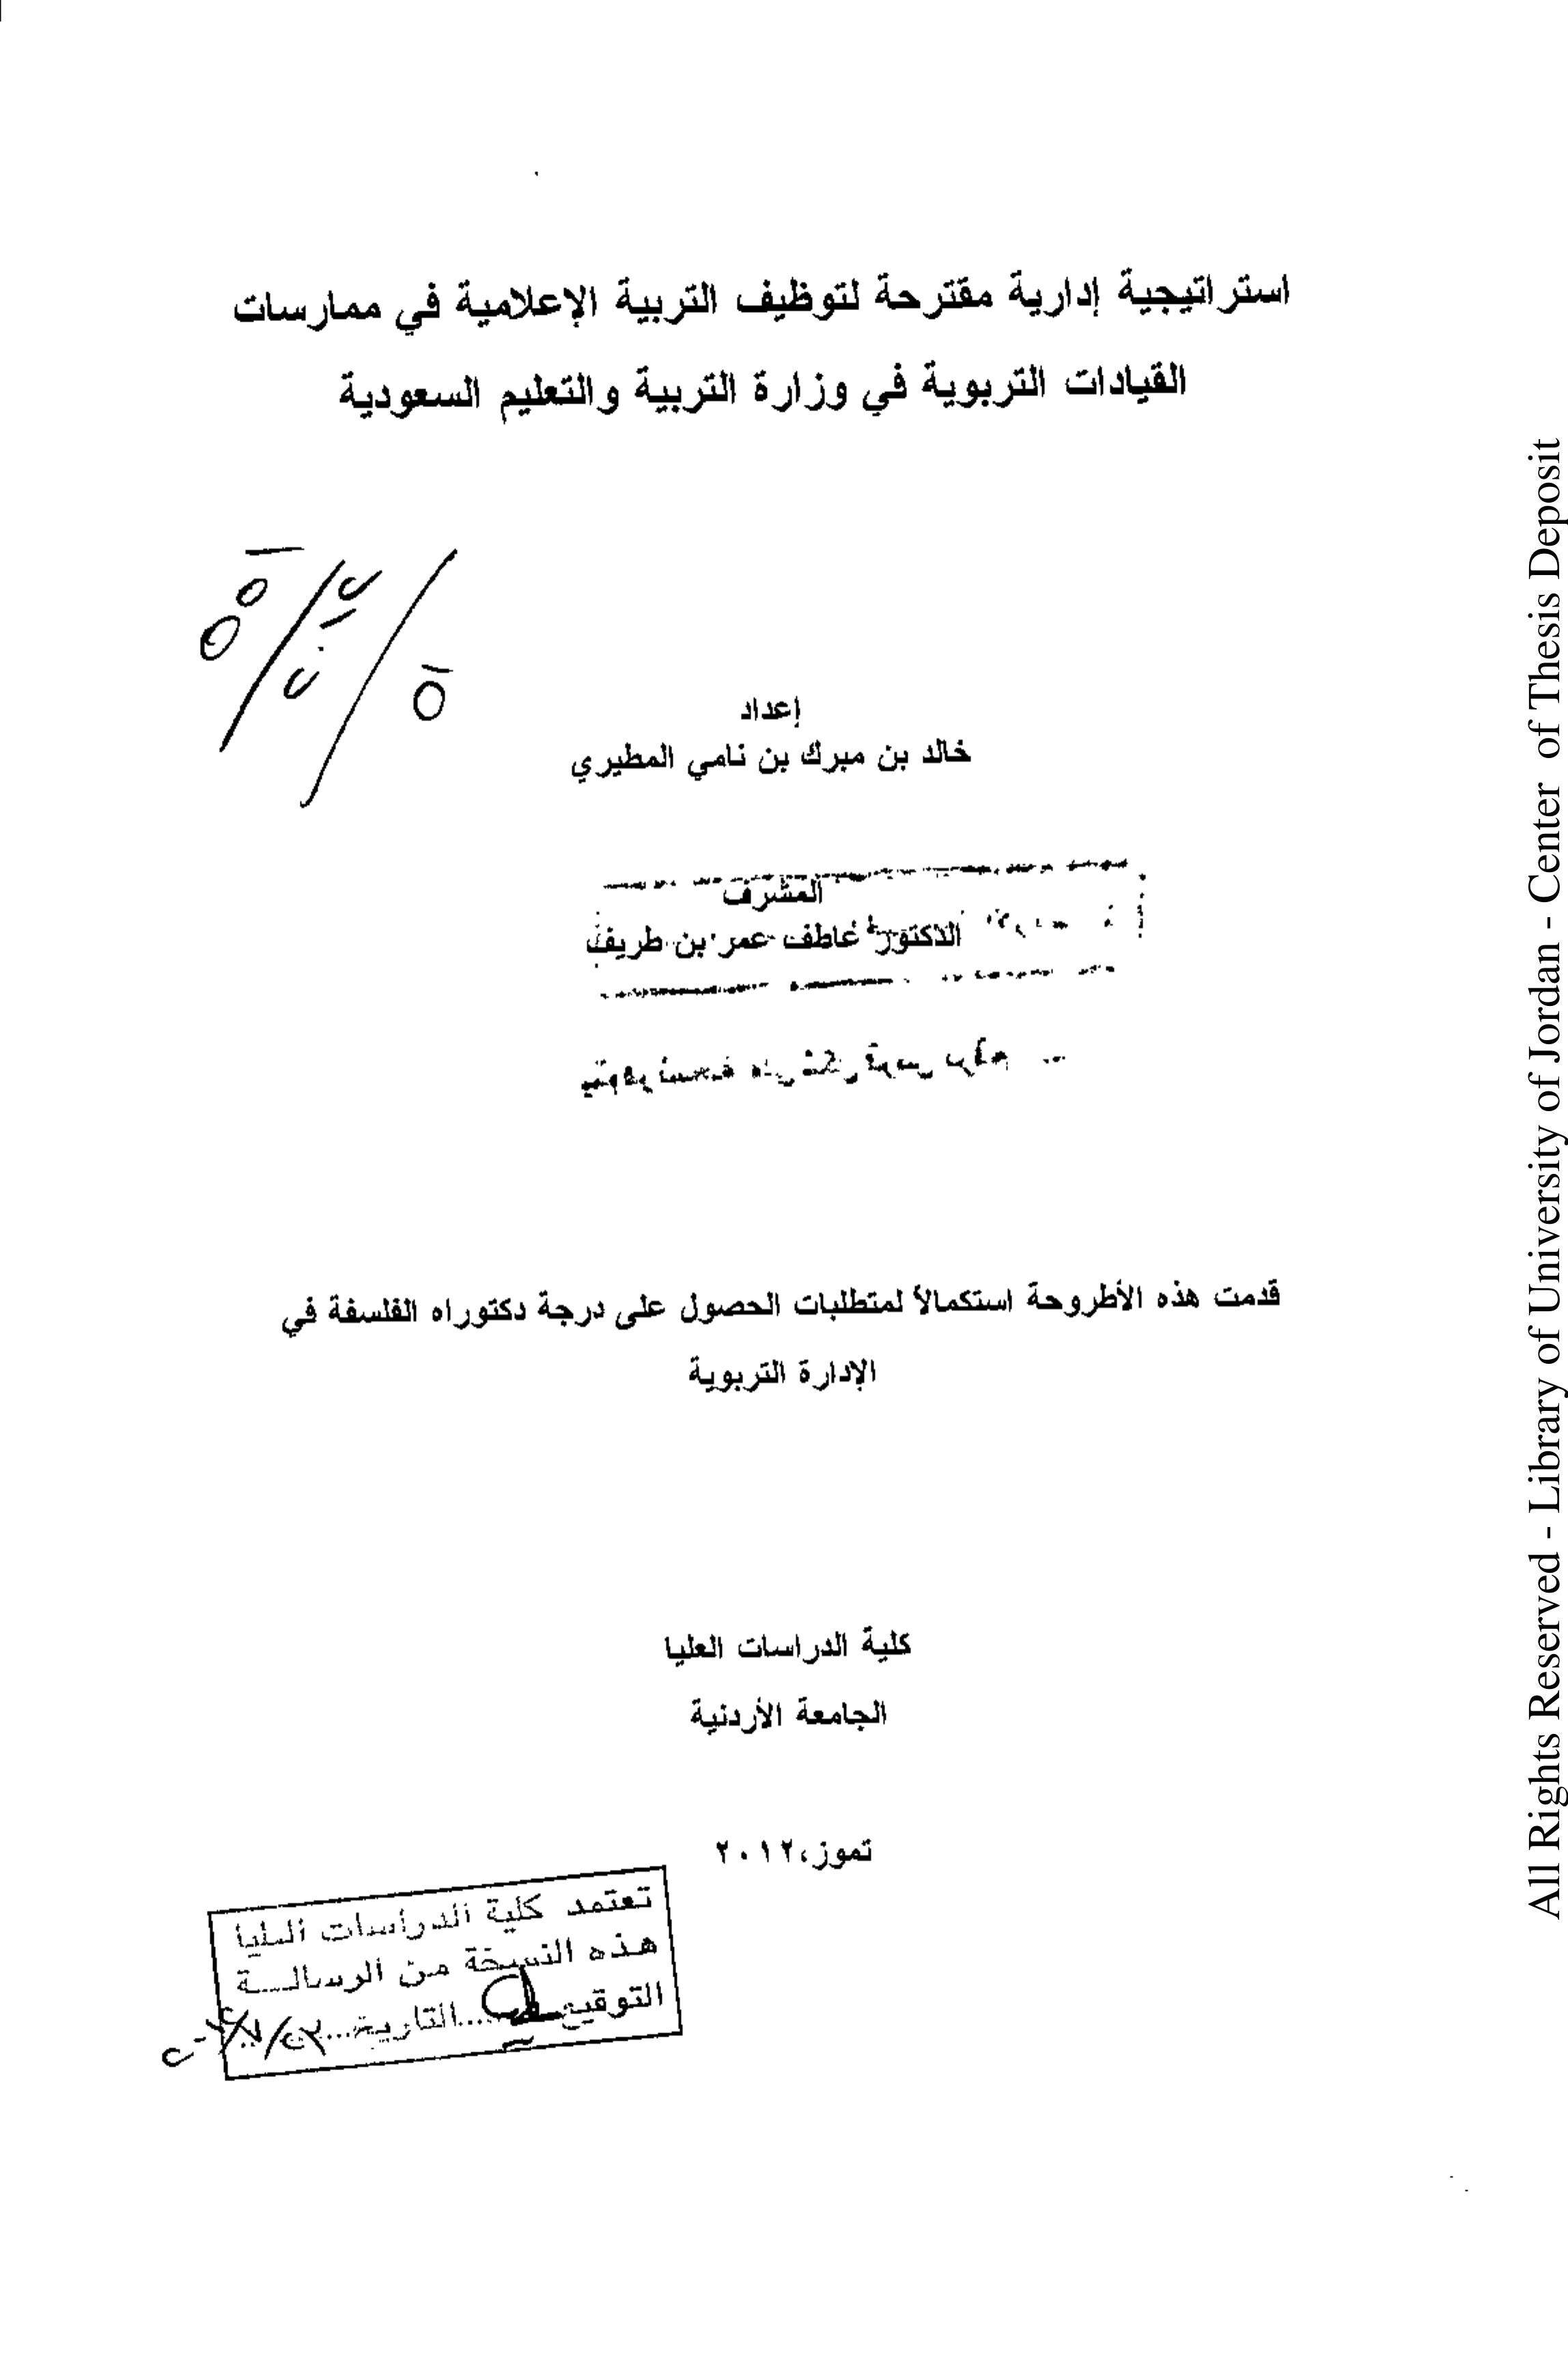 استراتيجية إدارية مقترحة لتوظيف التربية الإعلامية في ممارسات
القيادات التربوية في وزارة التربية والتعليم السعودية
إعداد
خالد بن مبرك بن نامي المطيري
المشرف
الدكتور عاطف عمر بن طريف
قدمت هذه الأطروحة استكمالاً لمتطلبات الحصول على درجة دكتوراه الفلسفة في
الإدارة التربوية
كلية الدراسات العليا
الجامعة الأردنية
تموز،٢٠١٢
تعتمد كلية الدراسات العليا
هذه النسخة من الرسالة
التوقيع......التاريخ...
All Rights Reserved - Library of University of Jordan - Center of Thesis Deposit